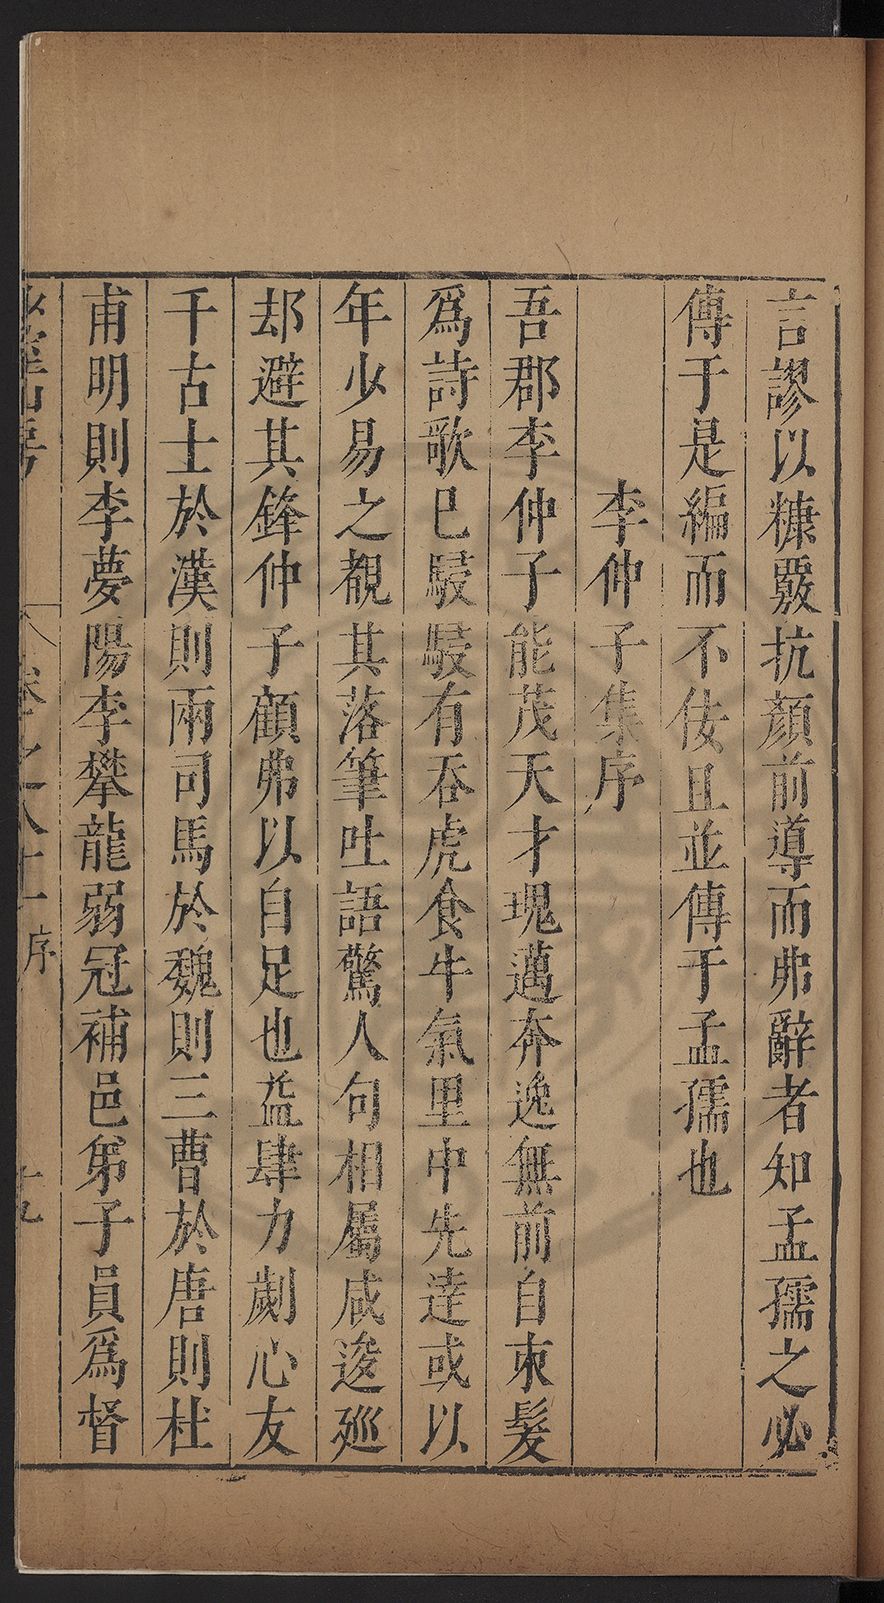 言謬以糠覈抗顏前導而弗辭者知孟孺之必
傳于是編而不佞且並傳于孟孺也
李仲子集序
吾郡李仲子能茂天才瑰邁奔逸無前自束髮
爲詩歌巳駸駸有吞虎食牛氣里中先達或以
年少易之覩其落筆吐語驚人句相屬咸逡廵
却避其鋒仲子顧弗以自足也益肆力劌心友
千古士於漢則兩司馬於魏則三曹於唐則杜
甫明則李夢陽李攀龍弱冠補邑弟子員爲督
卷之八十一 序